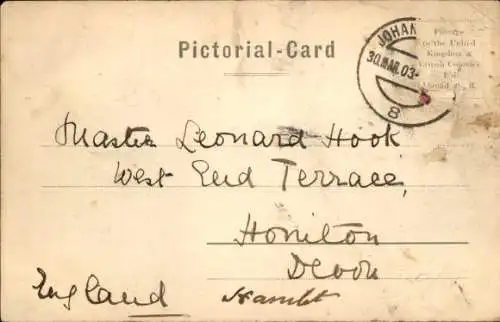 Pictorial-Card
JOHAN
30.MAR.03
8
Postage
to the United
Kingdom &
British Colonies
Master Leonard Hook
West End Terrace,
Honiton
Devon
England